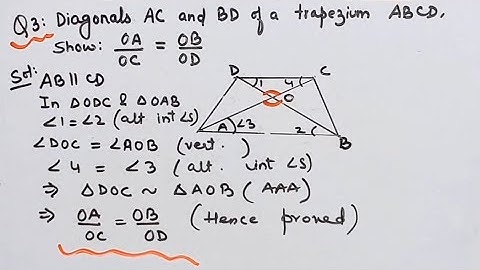 Q3: Diagonals AC and BD of a trapezium ABCD.
Show: OA/OC = OB/OD
Sol: AB || CD
In △ODC & △OAB
∠1 = ∠2 (alt int ∠s)
∠DOC = ∠AOB (vert. )
∠4 = ∠3 (alt. int ∠s)
⇒ △DOC ~ △AOB (AAA)
⇒ OA/OC = OB/OD (Hence proved)
D 1 4 C
O
A ∠3 2 B